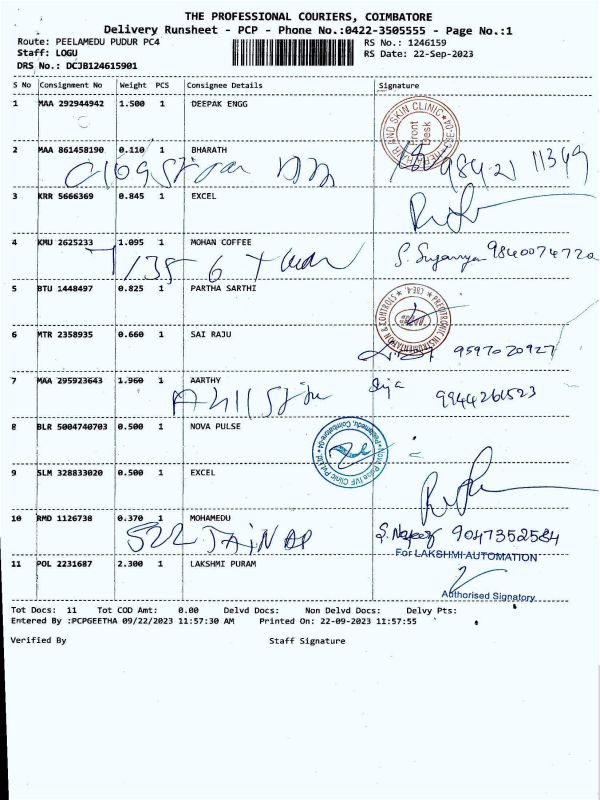 THE PROFESSIONAL COURIERS, COIMBATORE
Delivery Runsheet - PCP - Phone No.:0422-3505555 - Page No.:1
Route: PEELAMEDU PUDUR PC4 RS No.: 1246159
Staff: LOGU RS Date: 22-Sep-2023
DRS No.: DCJB124615901
S No Consignment No Weight PCS Consignee Details Signature
1 MAA 292944942 1.500 1 DEEPAK ENGG
HAIR AND SKIN CLINIC
Front Desk
2 MAA 861458190 0.110 1 BHARATH
98421 11349
3 KRR 5666369 0.845 1 EXCEL
4 KMU 2625233 1.095 1 MOHAN COFFEE
S. Suganya 9840074720
5 BTU 1448497 0.825 1 PARTHA SARTHI
INSTRUMENTATION & CONTROLS * CBE-4 *
6 MTR 2358935 0.660 1 SAI RAJU
9597020927
7 MAA 295923643 1.960 1 AARTHY
9944261523
8 BLR 5004740703 0.500 1 NOVA PULSE
Nova Pulse IVF Clinic Pvt Ltd * Peelamedu, Coimbatore-04 *
9 SLM 328833020 0.500 1 EXCEL
10 RMD 1126738 0.370 1 MOHAMEDU
522 JAINAP 9047352584
For LAKSHMI AUTOMATION
11 POL 2231687 2.300 1 LAKSHMI PURAM
Authorised Signatory
Tot Docs: 11 Tot COD Amt: 0.00 Delvd Docs: Non Delvd Docs: Delvy Pts:
Entered By :PCPGEETHA 09/22/2023 11:57:30 AM Printed On: 22-09-2023 11:57:55
Verified By Staff Signature